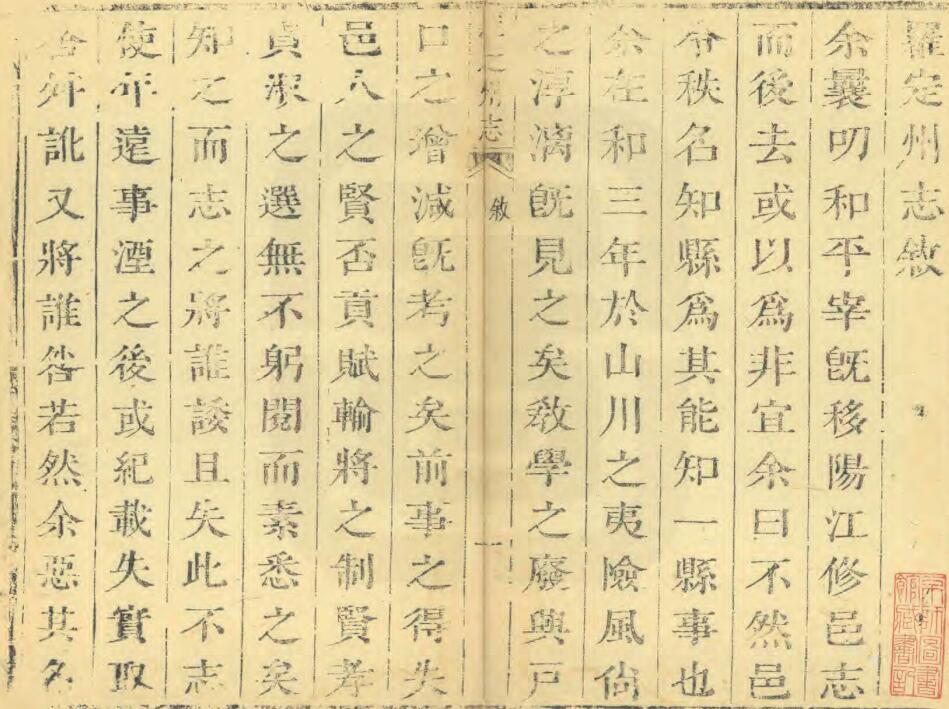 羅定州志敘
余曩叨和平宰旣移陽江修邑志
而後去或以爲非宜余曰不然邑
令秩名知縣爲其能知一縣事也
余在和三年於山川之夷險風尙
之淳漓旣見之矣敎學之廢興戶
州志
敘
一
口之增減旣考之矣前事之得失
邑人之賢否貢賦輸將之制賢孝
貞淑之選無不躬閱而素悉之矣
知之而志之將誰諉且失此不志
使年遠事湮之後或紀載失實取
舛訛又將誰咎若然余惡其名